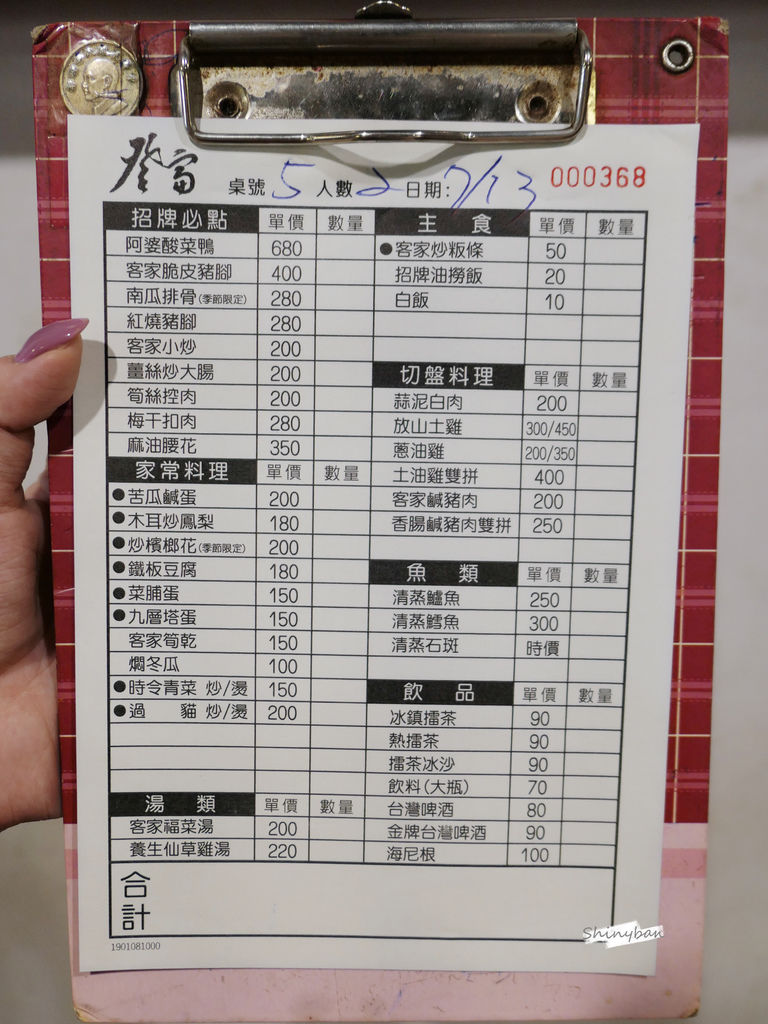 登富 桌號 5 人數 2 日期: 7/13 000368
招牌必點 單價 數量
阿婆酸菜鴨 680
客家脆皮豬腳 400
南瓜排骨(季節限定) 280
紅燒豬腳 280
客家小炒 200
薑絲炒大腸 200
筍絲控肉 200
梅干扣肉 280
麻油腰花 350
家常料理 單價 數量
●苦瓜鹹蛋 200
●木耳炒鳳梨 180
●炒檳榔花(季節限定) 200
●鐵板豆腐 180
●菜脯蛋 150
●九層塔蛋 150
客家筍乾 150
燜冬瓜 100
●時令青菜 炒/燙 150
●過 貓 炒/燙 200
湯類 單價 數量
客家福菜湯 200
養生仙草雞湯 220
主食 單價 數量
●客家炒粄條 50
招牌油撈飯 20
白飯 10
切盤料理 單價 數量
蒜泥白肉 200
放山土雞 300/450
蔥油雞 200/350
土油雞雙拼 400
客家鹹豬肉 200
香腸鹹豬肉雙拼 250
魚類 單價 數量
清蒸鱸魚 250
清蒸鱈魚 300
清蒸石斑 時價
飲品 單價 數量
冰鎮擂茶 90
熱擂茶 90
擂茶冰沙 90
飲料(大瓶) 70
台灣啤酒 80
金牌台灣啤酒 90
海尼根 100
合計
1901081000
Shinyban